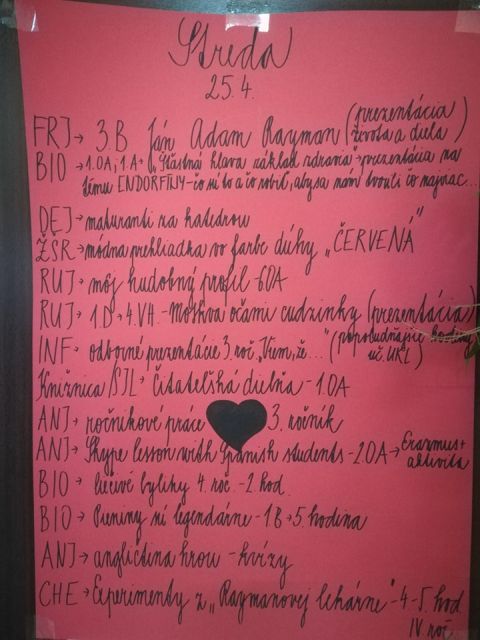 Streda
25.4.
FRJ → 3.B Ján Adam Rayman (prezentácia
života a diela)
BIO → 1.OA, 1.A → „Šťastná hlava základ zdravia" → prezentácia na
tému ENDORFÍNY - čo sú to a čo robiť, aby sa nám tvorili čo najviac...
DEJ → maturanti za katedrou
ŽŠR → módna prehliadka vo farbe dúhy „ČERVENÁ"
RUJ → môj hudobný profil - 6.OA
RUJ → 1.D → 4.VH. - Moskva očami cudzinky (prezentácia)
INF → odborné prezentácie 3. roč. „Viem, že..." (popoludňajšie hodiny
uč. UKL)
Knižnica / SJL → Čitateľská dielňa - 1.OA
ANJ → ročníkové práce 3. ročník
ANJ → Skype lesson with Spanish students - 2.OA → Erasmus+
aktivita
BIO → liečivé bylinky 4. roč. - 2. hod.
BIO → Pieniny sú legendárne - 1.B → 5. hodina
ANJ → angličtina hrou - kvízy
CHE → Experimenty z „Raymanovej lekárne" - 4.-5. hod
IV. roč.